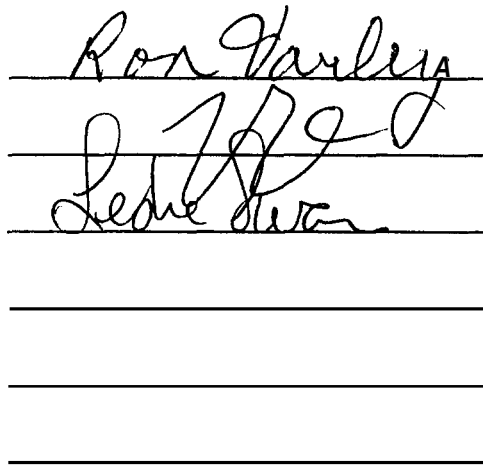 Ron Varley
Leslie Swan